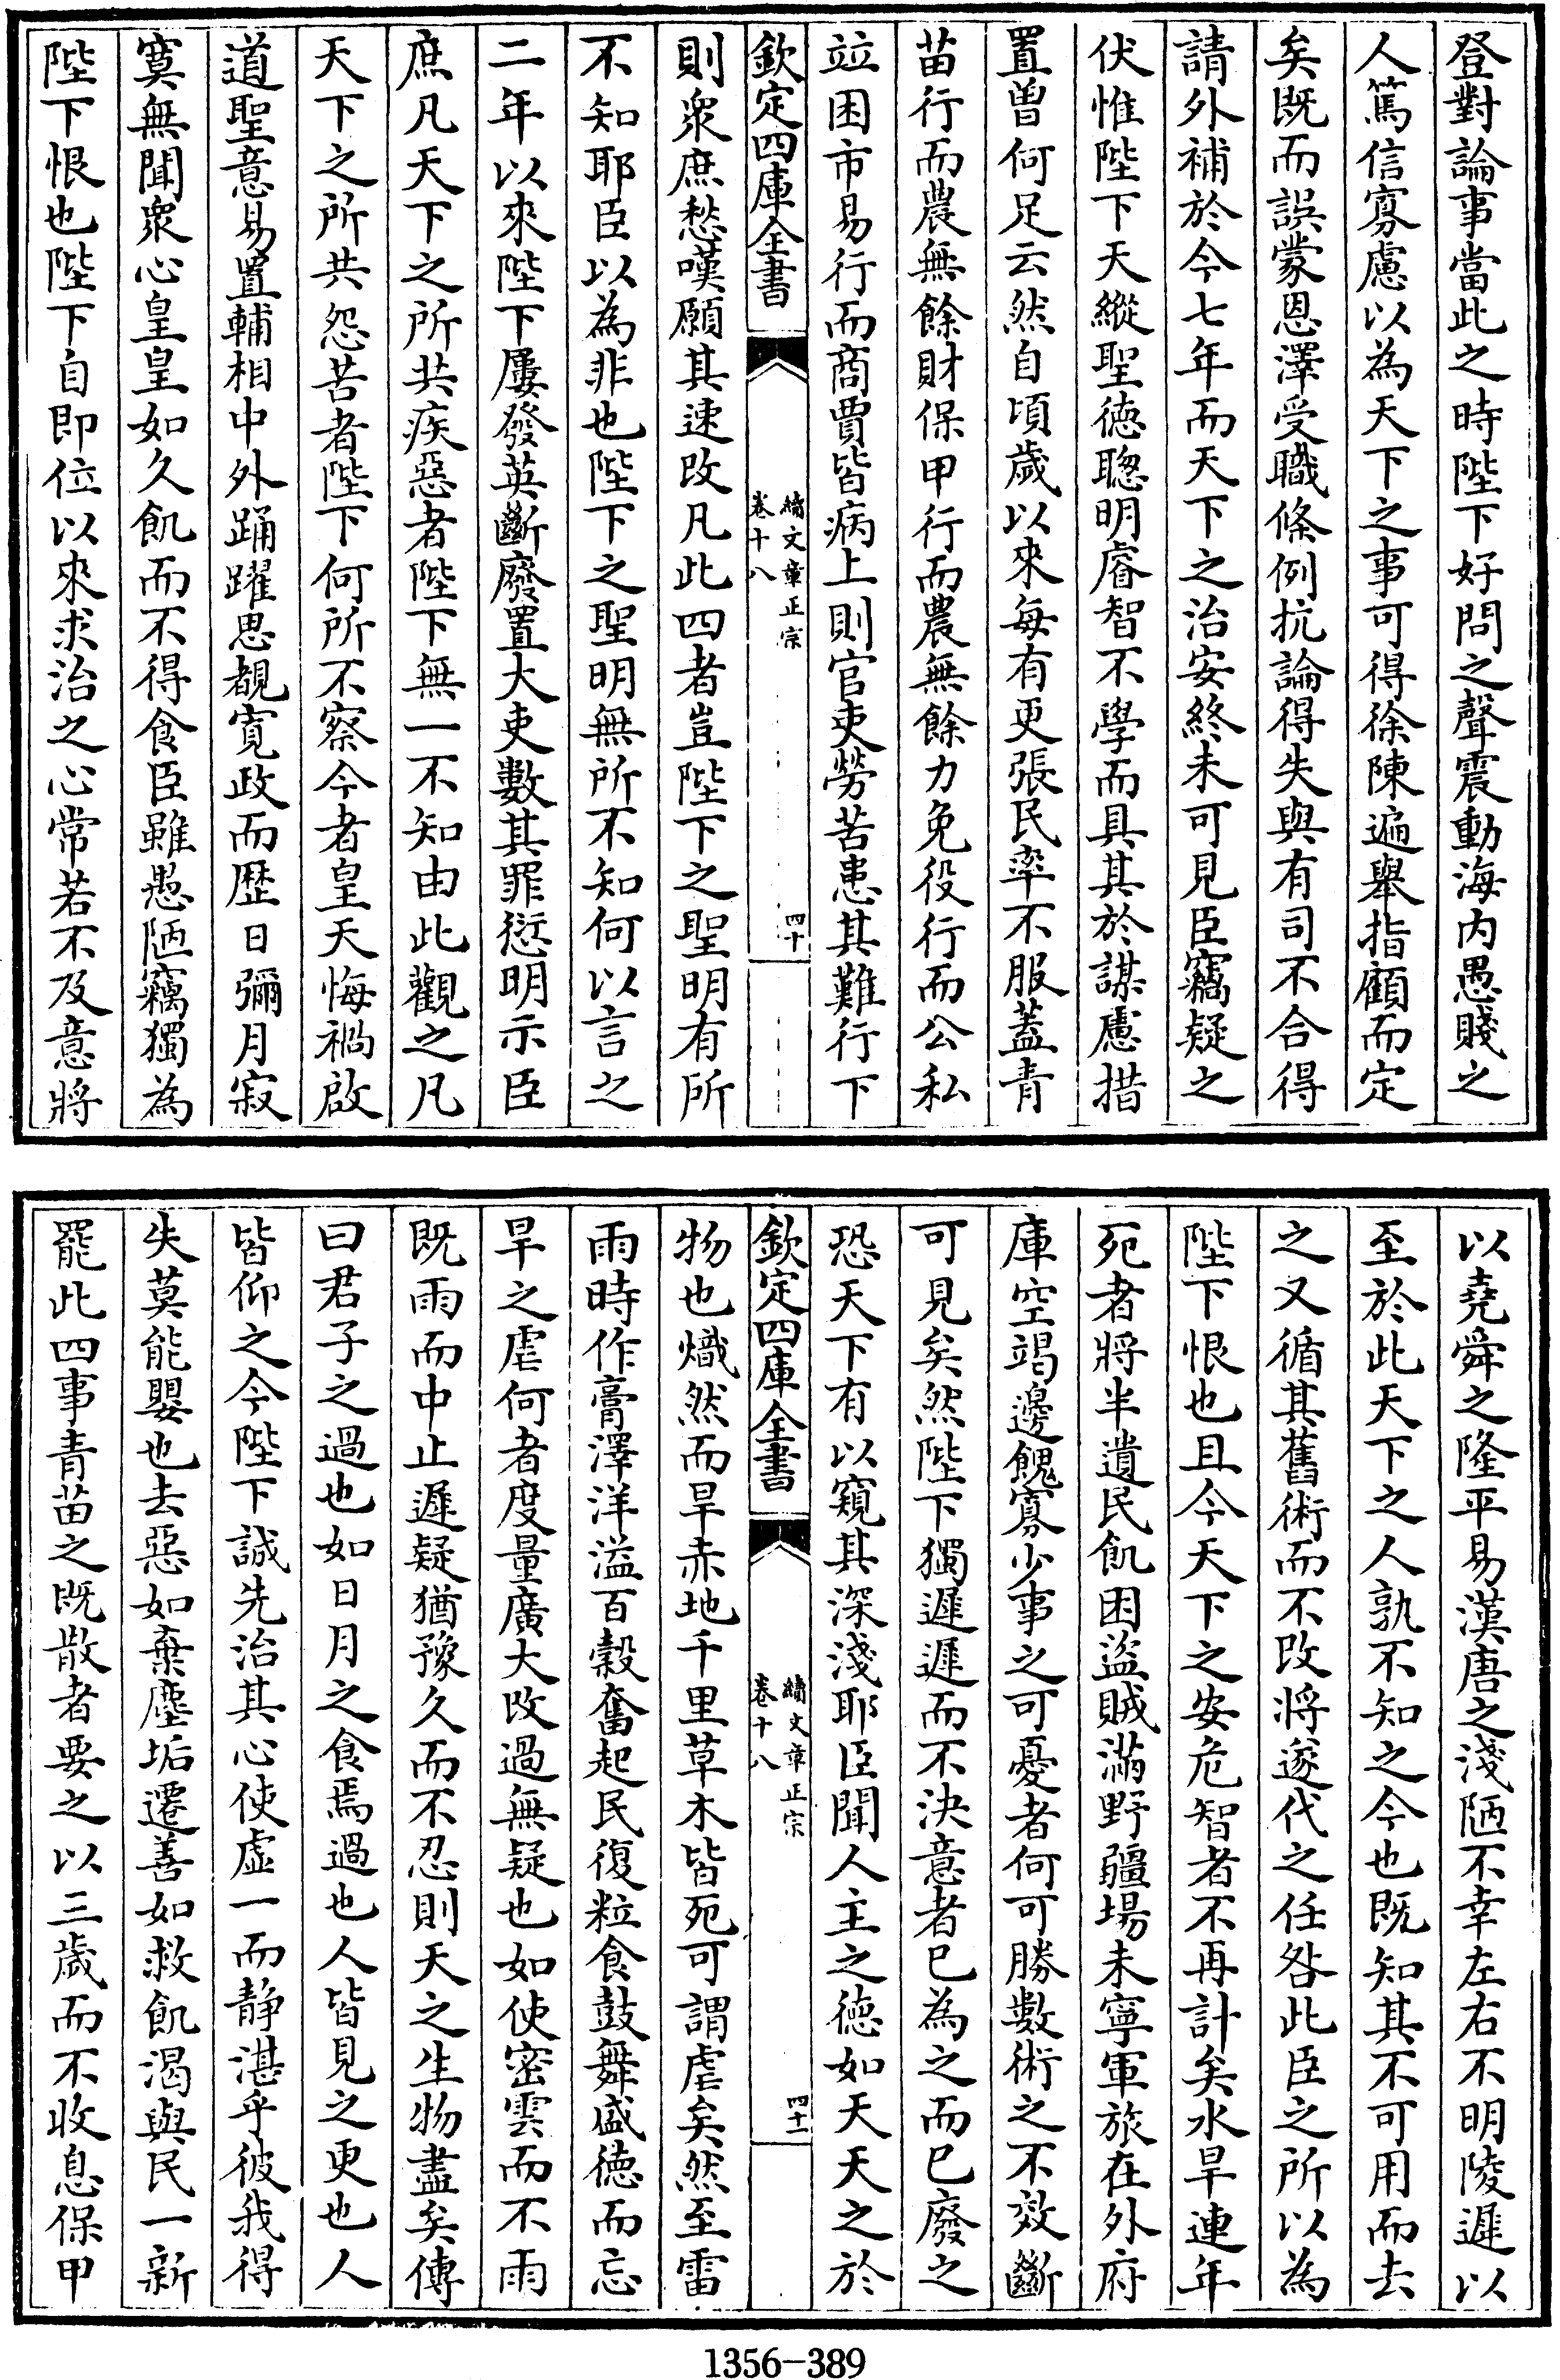 登對論事當此之時陛下好問之聲震動海内愚賤之
人篤信寡慮以為天下之事可得徐陳遍舉指顧而定
矣既而誤蒙恩澤受職條例抗論得失與有司不合得
請外補於今七年而天下之治安終未可見臣竊疑之
伏惟陛下天縱聖徳聰明睿智不學而具其於謀慮措
置曽何足云然自頃歲以來毎有更張民率不服蓋青
苗行而農無餘財保甲行而農無餘力免役行而公私
竝困市易行而商賈皆病上則官吏勞苦患其難行下
欽定四庫全書
續文章正宗
卷十八
四十
則衆庶愁嘆願其速改凡此四者豈陛下之聖明有所
不知耶臣以為非也陛下之聖明無所不知何以言之
二年以來陛下屢發英斷廢置大吏數其罪愆明示臣
庶凡天下之所共疾惡者陛下無一不知由此觀之凡
天下之所共怨苦者陛下何所不察今者皇天悔禍啟
道聖意易置輔相中外踊躍思覩寛政而歴日彌月寂
寞無聞衆心皇皇如久飢而不得食臣雖愚陋竊獨為
陛下恨也陛下自即位以來求治之心常若不及意將
以堯舜之隆平易漢唐之淺陋不幸左右不明陵遲以
至於此天下之人孰不知之今也既知其不可用而去
之又循其舊術而不改將遂代之任咎此臣之所以為
陛下恨也且今天下之安危智者不再計矣水旱連年
死者將半遺民飢困盜賊滿野疆埸未寧軍旅在外府
庫空竭邊餽寡少事之可憂者何可勝數術之不效斷
可見矣然陛下獨遲遲而不決意者已為之而已廢之
恐天下有以窺其深淺耶臣聞人主之徳如天天之於
欽定四庫全書
續文章正宗
卷十八
四十一
物也熾然而旱赤地千里草木皆死可謂虐矣然至雷
雨時作膏澤洋溢百穀奮起民復粒食鼓舞盛徳而忘
旱之虐何者度量廣大改過無疑也如使密雲而不雨
既雨而中止遲疑猶豫久而不忍則天之生物盡矣傳
曰君子之過也如日月之食焉過也人皆見之更也人
皆仰之今陛下誠先治其心使虚一而静湛乎彼我得
失莫能嬰也去惡如棄塵垢遷善如救飢渴與民一新
罷此四事青苗之既散者要之以三歳而不收息保甲
1356-389